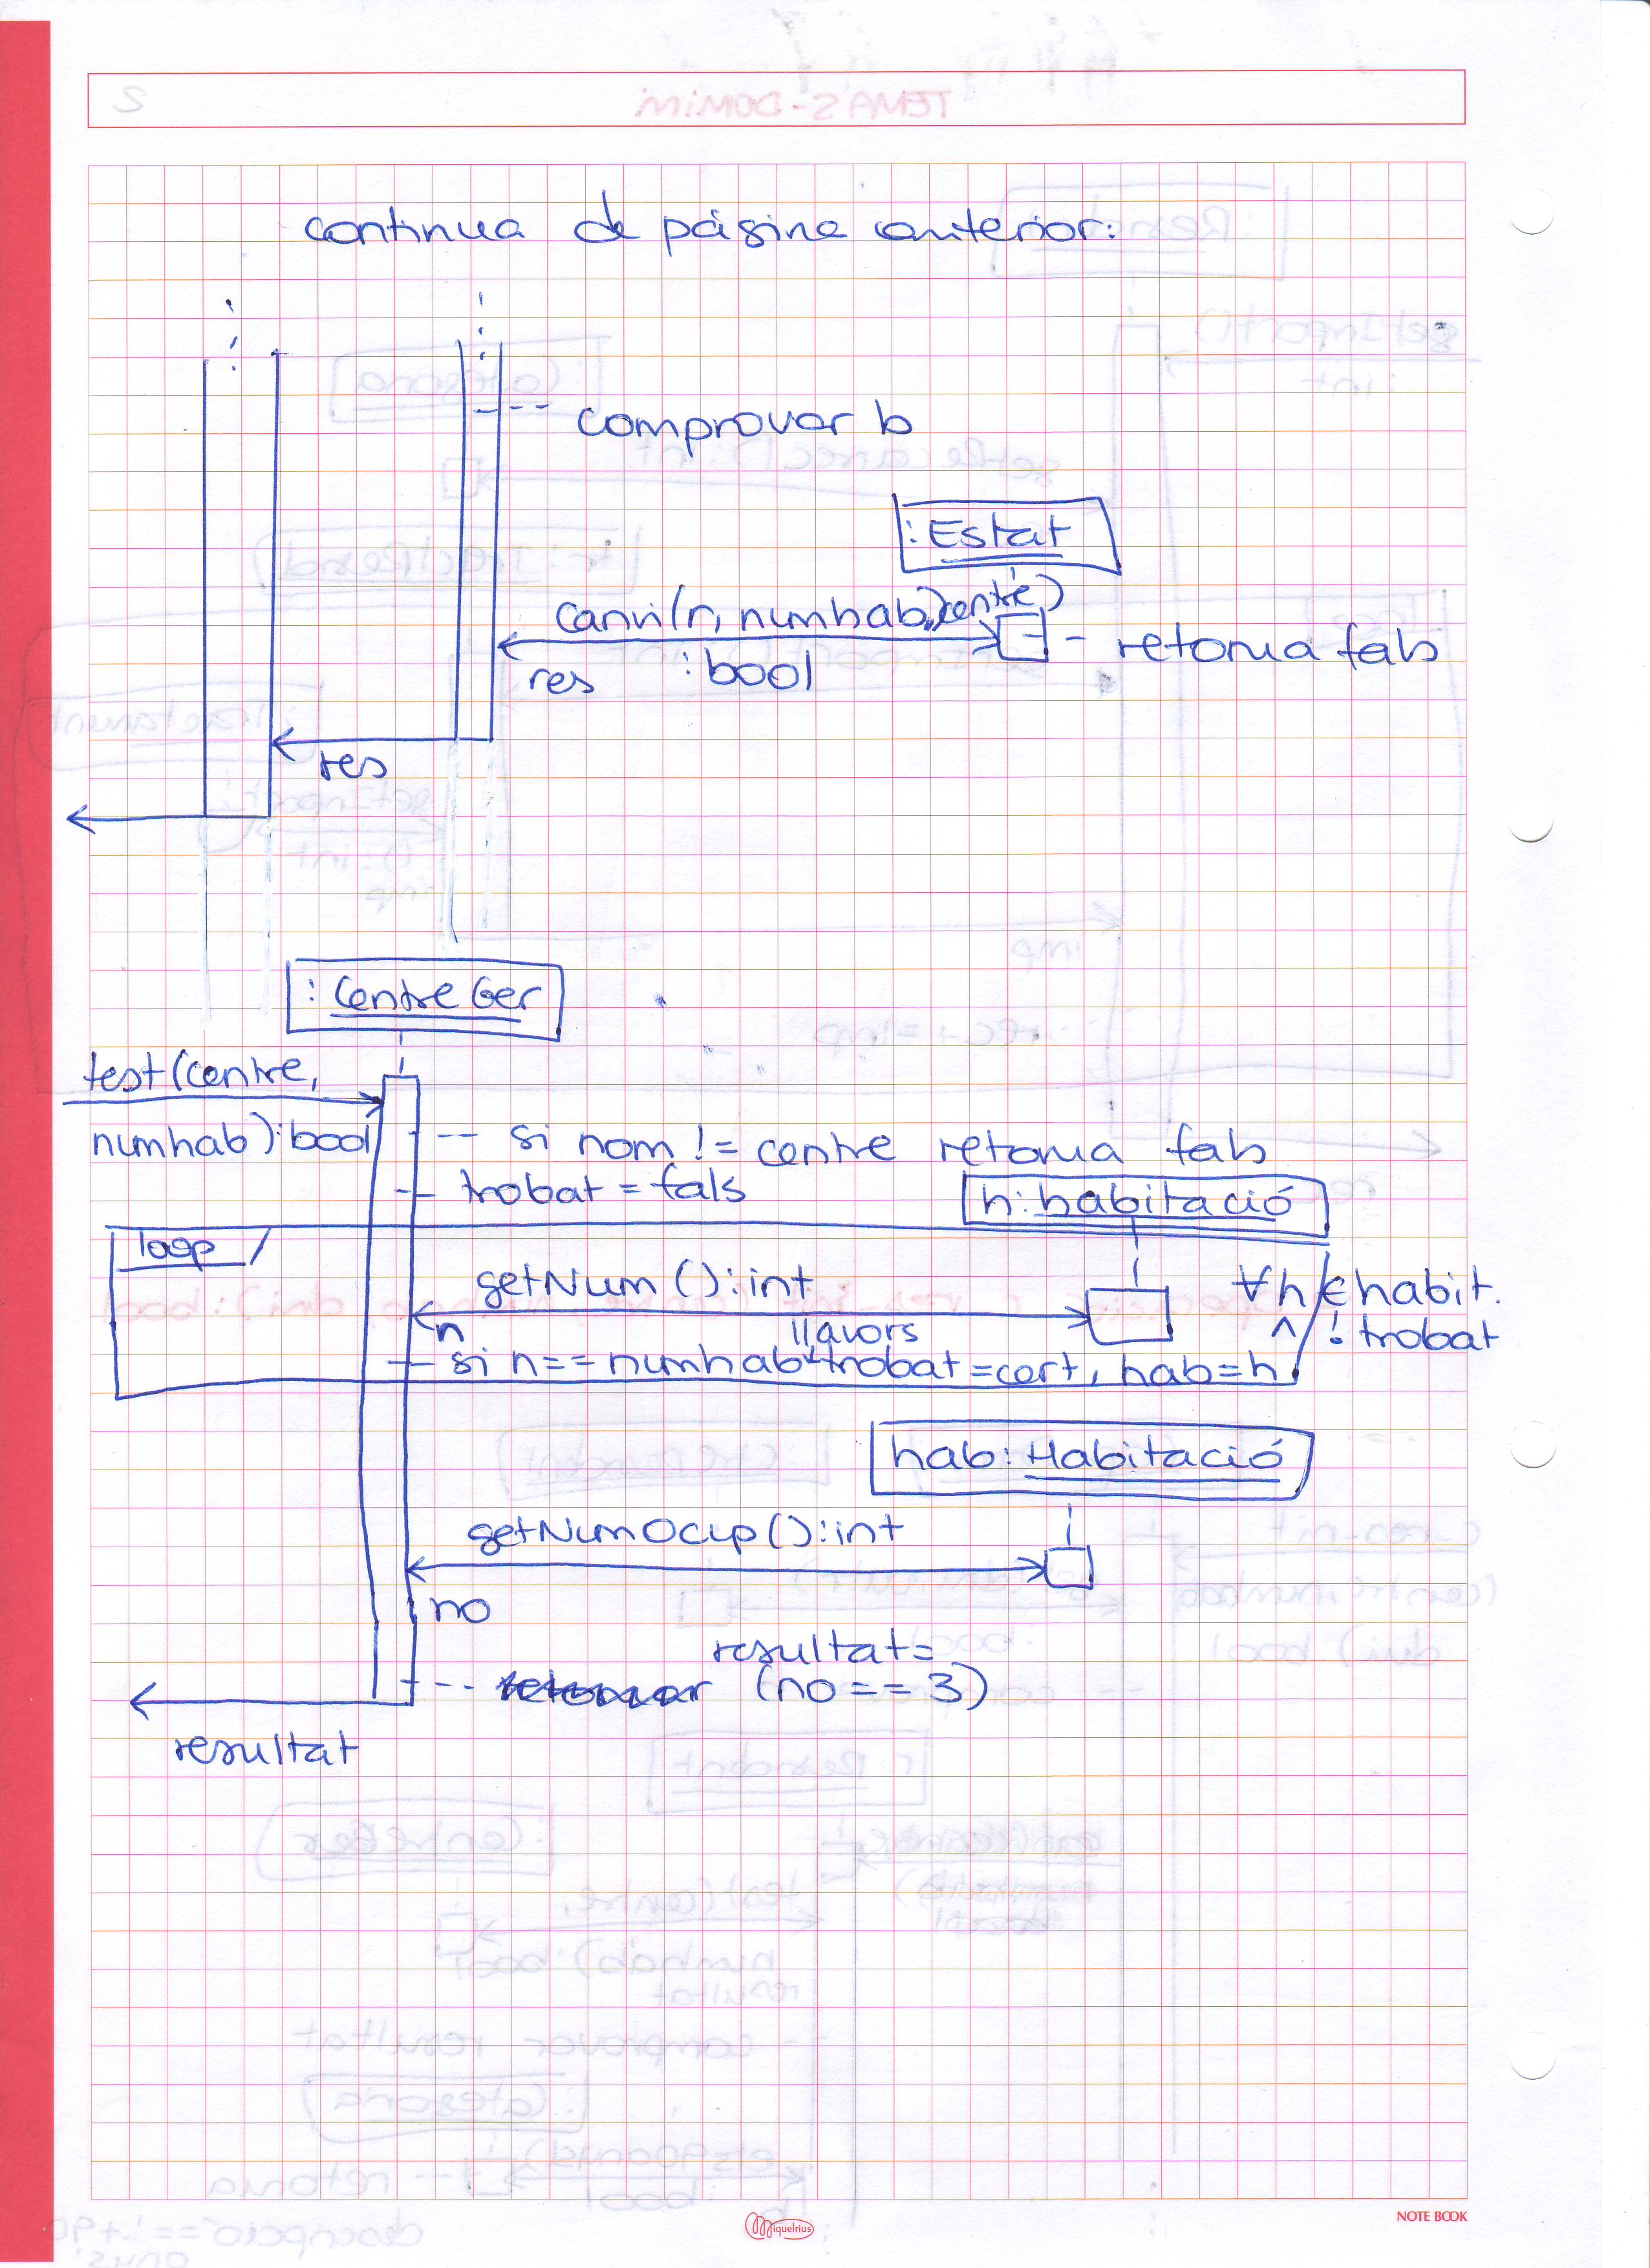 continua de página anterior:
comprovar b
:Estat
canvi(r, numhab, centre)
:bool
res
- retorna fals
res
:CentreGer
test(centre,
numhab):bool
-- si nom != centre retorna fals
trobat = fals
h:habitació
loop
getNum():int
n
∀h ∈ habit.
^ ! trobat
llavors
si n==numhab trobat=cert, hab=h
hab:Habitació
getNumOcup():int
no
resultat=
(no==3)
resultat
Miquelrius
NOTE BOOK